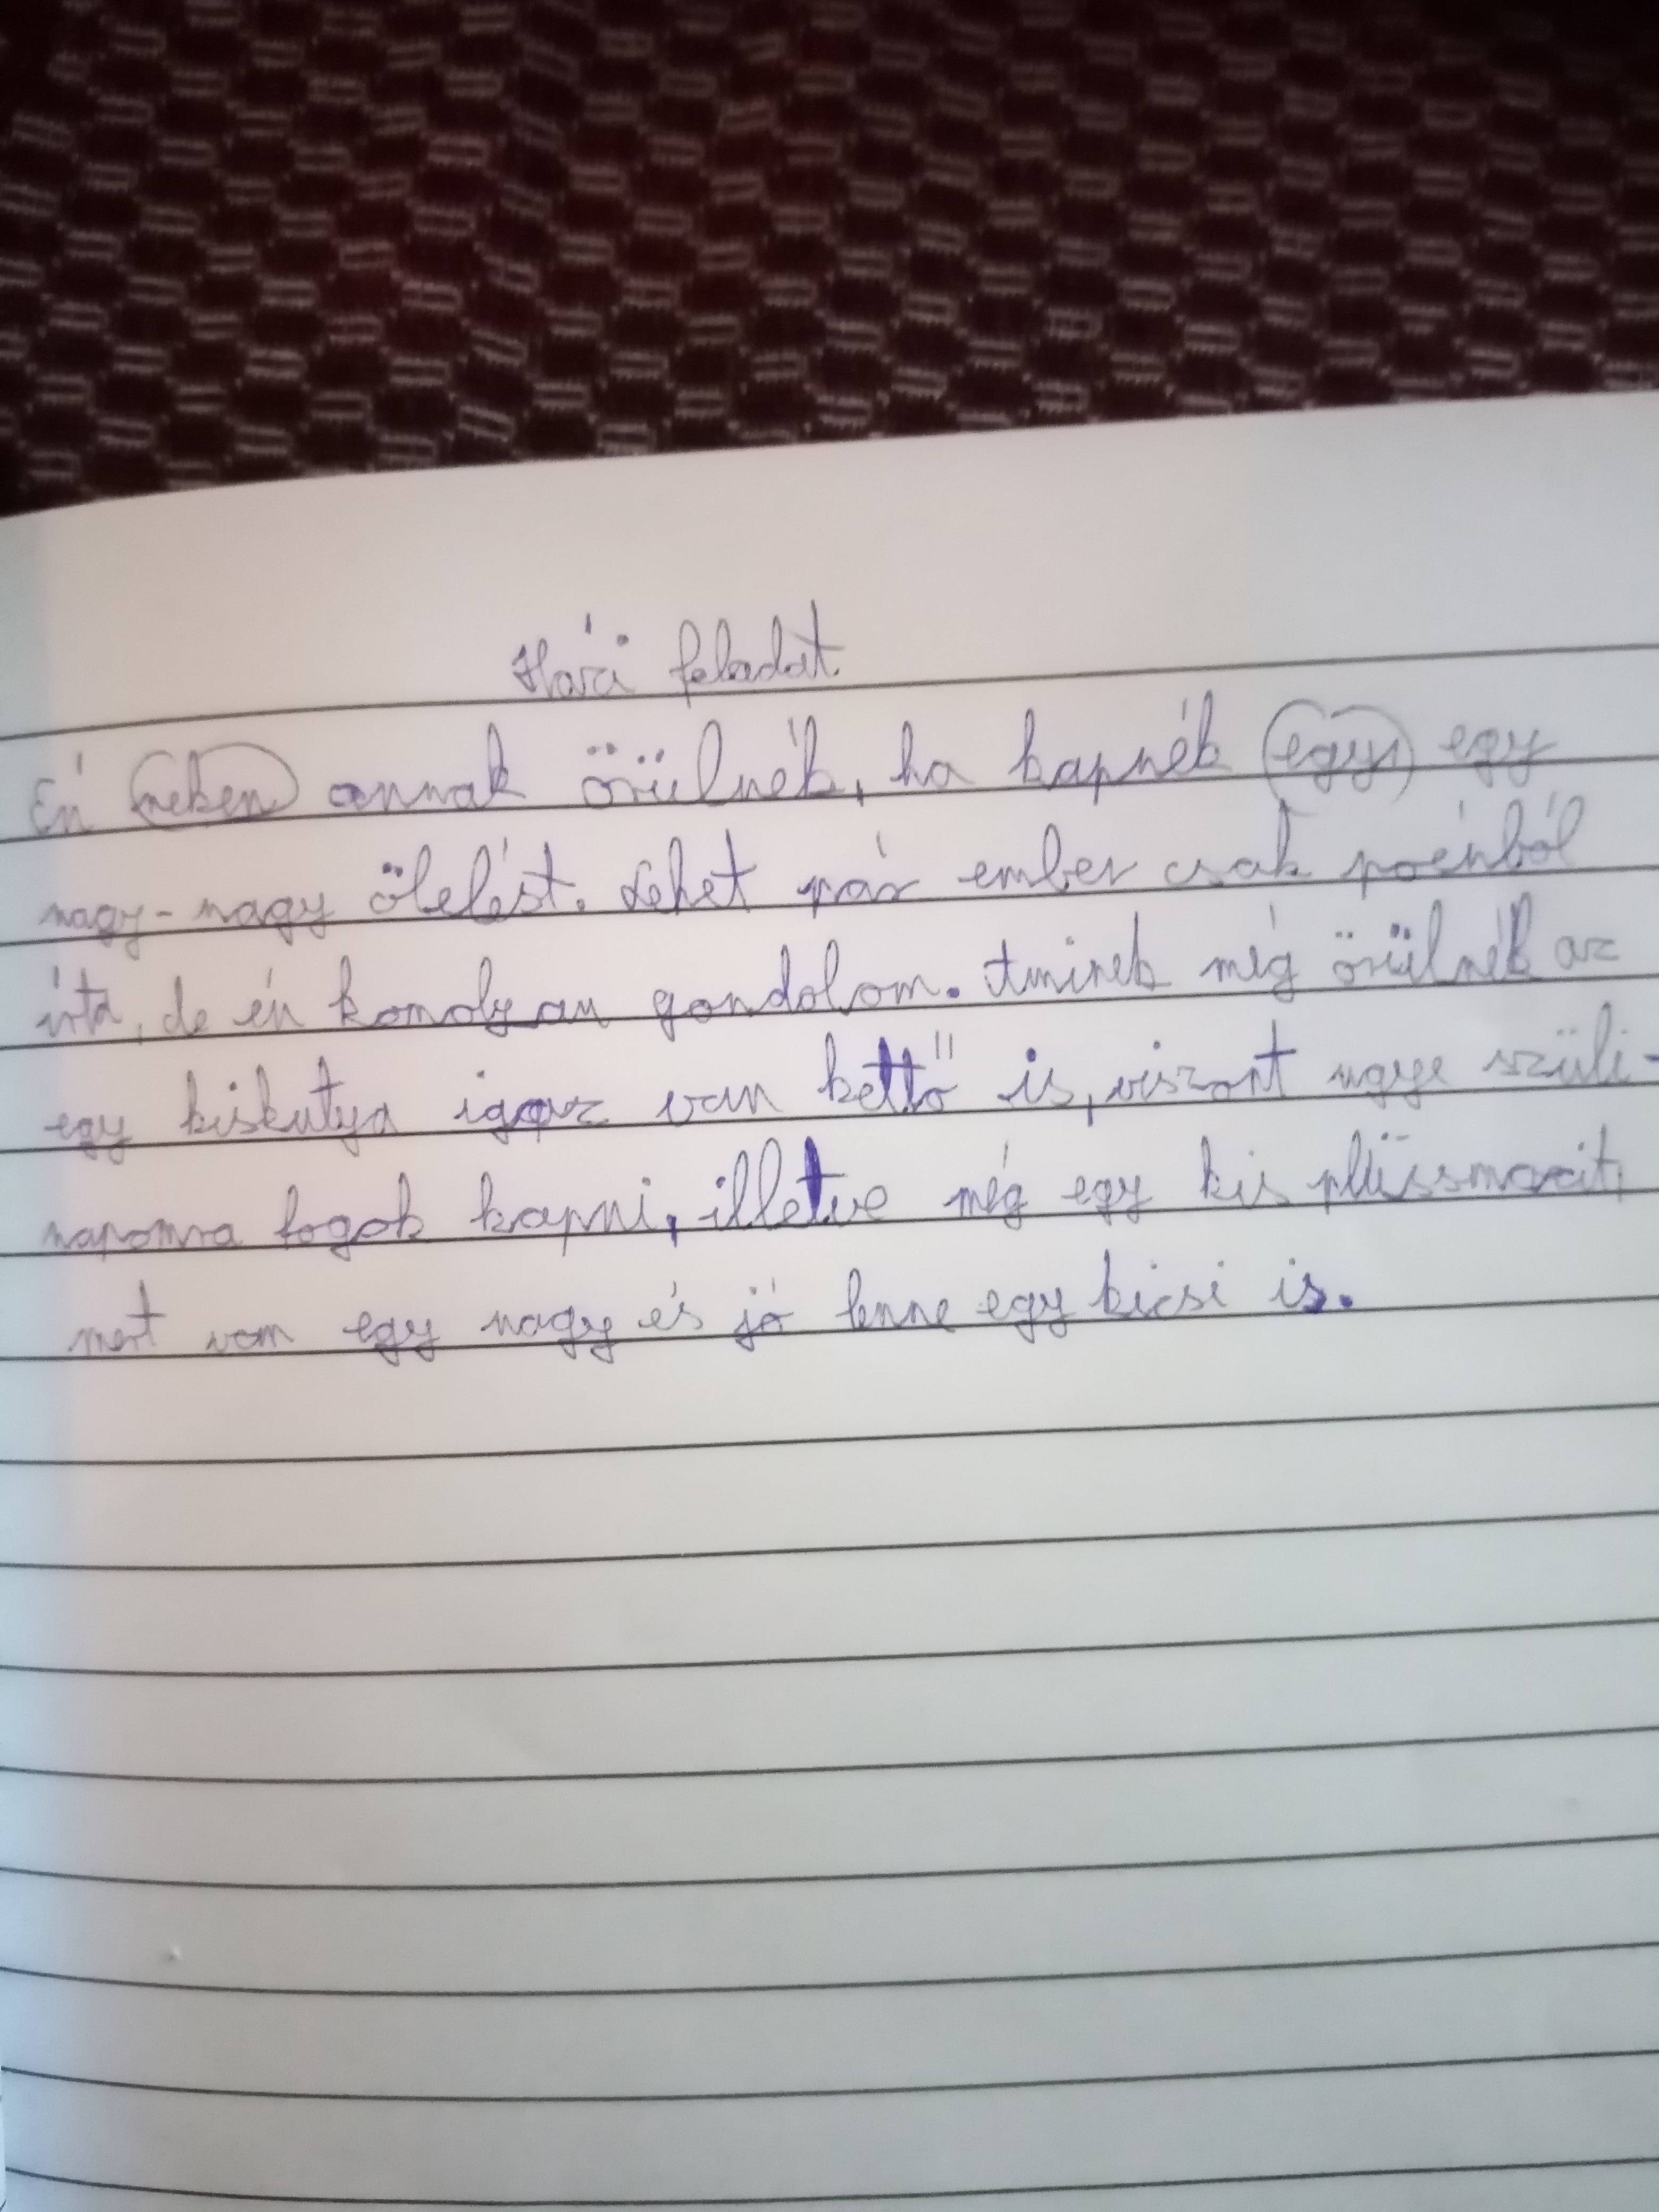 Házi feladat.
Én (neken) annak örülnék, ha kapnék (egyi) egy
nagy-nagy ölelést. Lehet pár ember csak poénból
írta, de én komolyan gondolom. Aminek még örülnék az
egy kiskutya igaz van kettő is, viszont ugye szüli-
napomra fogok kapni, illetve még egy kis plüssmacit,
mert van egy nagy és jó lenne egy kicsi is.